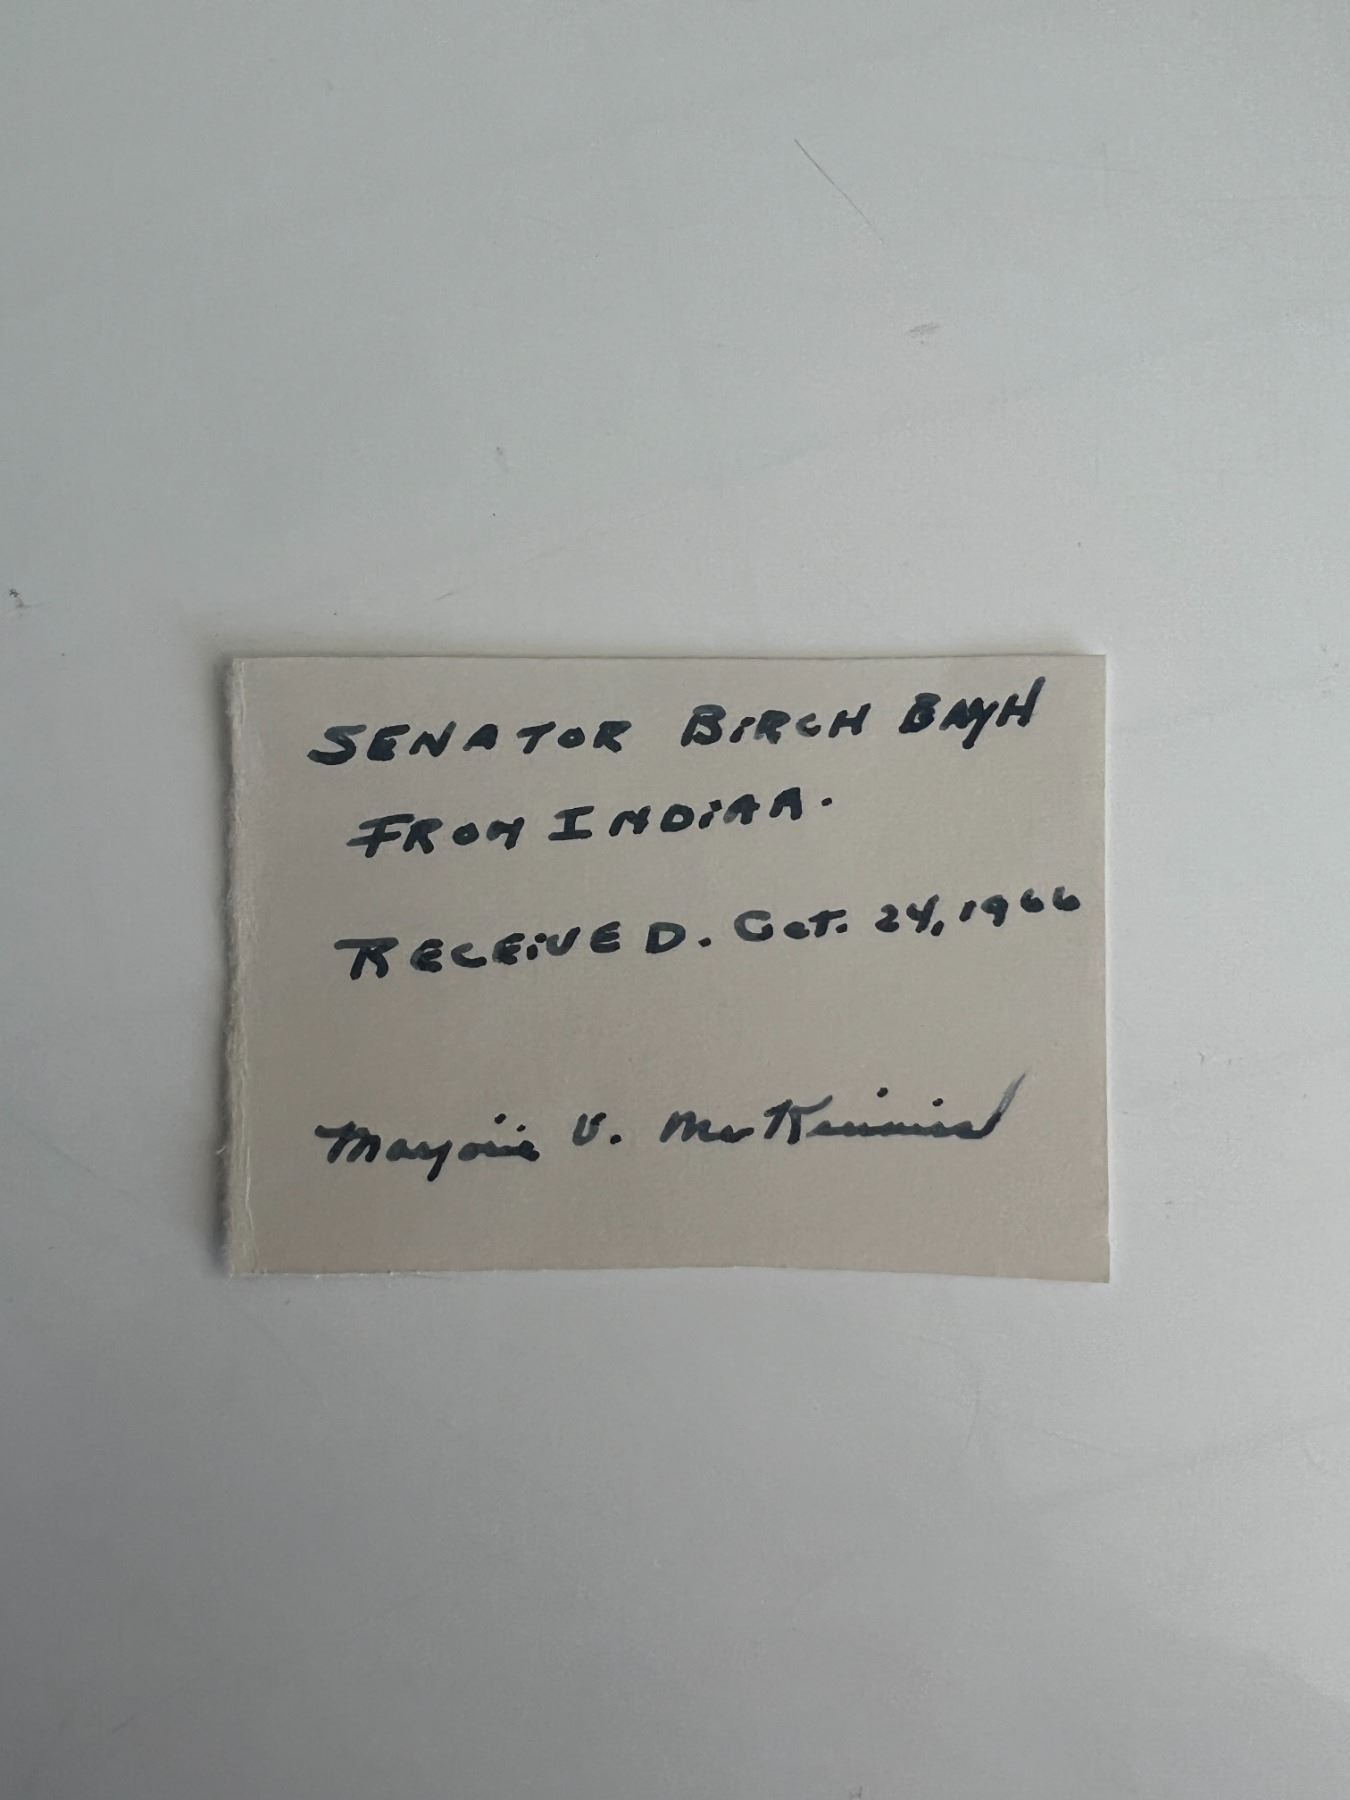 SENATOR BIRCH BAYH
FROM INDIAA.
RECEIVED. Oct. 24, 1966
Marjorie V.